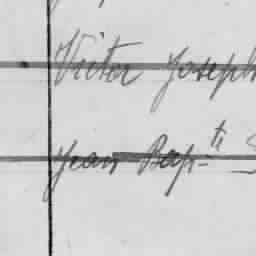 Victor Joseph
Jean Bap.te